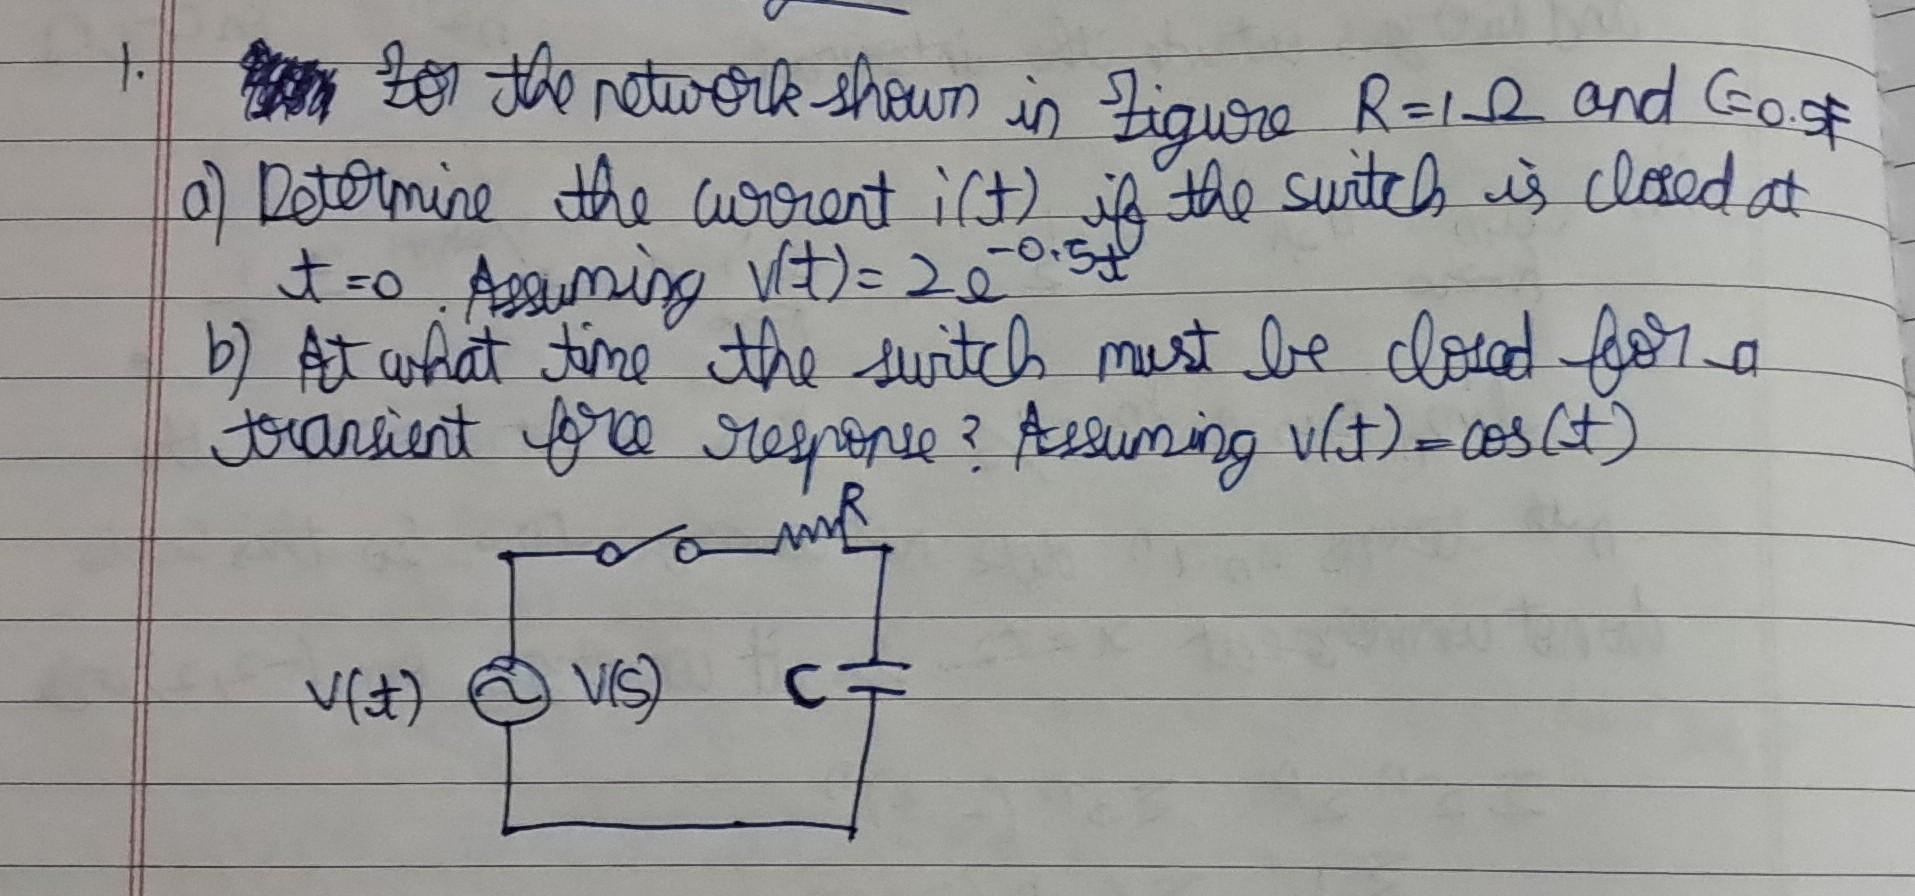 1. For the network shown in Figure R=1Ω and C=0.5F
a) Determine the current i(t) if the switch is closed at
t=0. Assuming v(t)= 2e^-0.5t
b) At what time the switch must be closed for a
transient force response? Assuming v(t)=cos(t)
R
V(t) V(s) C